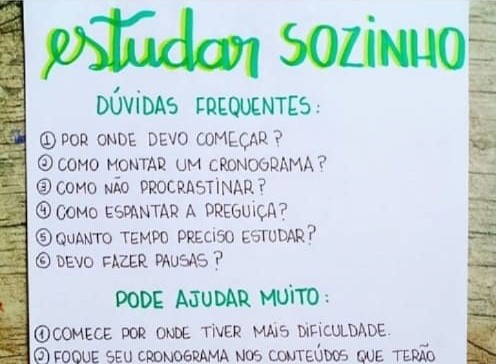 estudar SOZINHO
DÚVIDAS FREQUENTES:
① POR ONDE DEVO COMEÇAR?
② COMO MONTAR UM CRONOGRAMA?
③ COMO NÃO PROCRASTINAR?
④ COMO ESPANTAR A PREGUIÇA?
⑤ QUANTO TEMPO PRECISO ESTUDAR?
⑥ DEVO FAZER PAUSAS?
PODE AJUDAR MUITO:
① COMECE POR ONDE TIVER MAIS DIFICULDADE.
② FOQUE SEU CRONOGRAMA NOS CONTEÚDOS QUE TERÃO